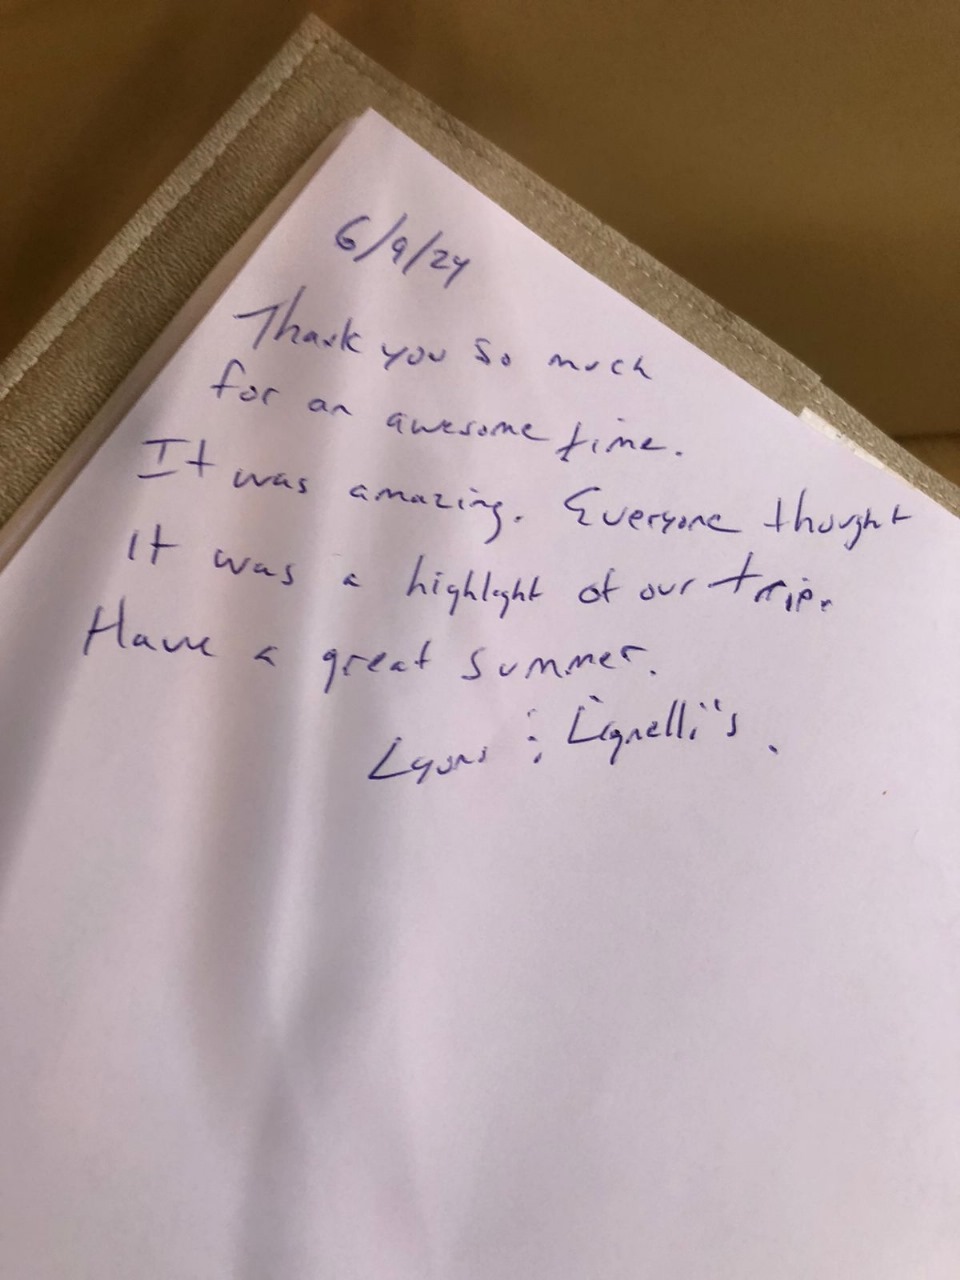 6/9/24
Thank you so much
for an awesome time.
It was amazing. Everyone thought
it was a highlight of our trip.
Have a great summer.
Lyons & Lignelli's.